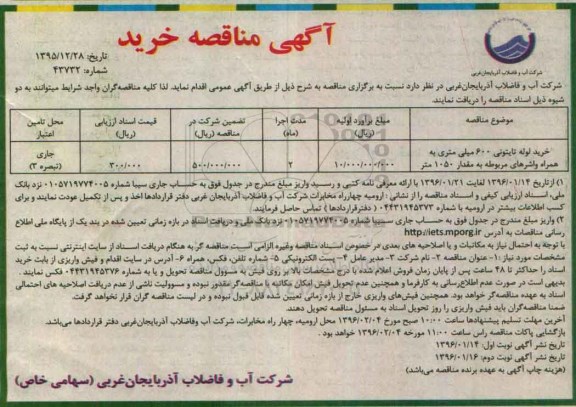 آگهی مناقصه خرید
تاریخ: ۱۳۹۵/۱۲/۲۸
شماره: ۴۳۷۳۲
شرکت آب و فاضلاب آذربایجان‌غربی
شرکت آب و فاضلاب آذربایجان‌غربی در نظر دارد نسبت به برگزاری مناقصه به شرح ذیل از طریق آگهی عمومی اقدام نماید. لذا کلیه مناقصه‌گران واجد شرایط میتوانند به دو
شیوه ذیل اسناد مناقصه را دریافت نمایند.
موضوع مناقصه
مبلغ برآورد اولیه (ریال)
مدت اجرا (ماه)
تضمین شرکت در مناقصه (ریال)
قیمت اسناد ارزیابی (ریال)
محل تامین اعتبار
خرید لوله تایتونی ۶۰۰ میلی متری به همراه واشرهای مربوطه به مقدار ۱۰۵۰ متر
۱۰/۰۰۰/۰۰۰/۰۰۰
۲
۵۰۰/۰۰۰/۰۰۰
۳۰۰/۰۰۰
جاری (تبصره ۳)
۱) از تاریخ ۱۳۹۶/۰۱/۱۴ لغایت ۱۳۹۶/۰۱/۲۱ با ارائه معرفی نامه کتبی و رسید واریز مبلغ مندرج در جدول فوق به حساب جاری سیبا شماره ۰۱۰۵۷۱۹۷۷۴۰۰۵ نزد بانک
ملی، اسناد ارزیابی کیفی و اسناد مناقصه را از نشانی: ارومیه چهارراه مخابرات شرکت آب و فاضلاب آذربایجان غربی دفتر قراردادها اخذ و پس از تکمیل عودت نمایند و برای
کسب اطلاعات بیشتر در ارومیه با شماره ۰۴۴۳۱۹۴۵۳۷۳ (دفتر قراردادها) تماس حاصل فرمایند.
۲) واریز مبلغ مندرج در جدول فوق به حساب جاری سیبا شماره ۰۱۰۵۷۱۹۷۷۴۰۰۵ نزد بانک ملی و دریافت اسناد در بازه زمانی تعیین شده در بند یک از پایگاه ملی اطلاع
رسانی مناقصات به آدرس http://iets.mporg.ir
با توجه به احتمال نیاز به مکاتبات و یا اصلاحیه های بعدی در خصوص اسناد مناقصه وغیره الزامی است مناقصه گر به هنگام دریافت اسناد از سایت اینترنتی نسبت به ثبت
مشخصات مورد نیاز :۱- عنوان مناقصه ۲- نام شرکت ۳- مدیرعامل ۴- پست الکترونیکی ۵- شماره تلفن، فکس، همراه ۶- آدرس در سایت اقدام و فیش واریزی از بابت خرید
اسناد را حداکثر تا ۴۸ ساعت پس از پایان زمان فروش اعلام شده با درج مشخصات بالا بر روی فیش به مسوول مناقصه تحویل و یا به شماره ۰۴۴۳۱۹۴۵۳۷۶ فکس نمایند.
بدیهی است در صورت عدم اطلاع‌رسانی به کارفرما و همچنین عدم تحویل فیش امکان مکاتبه با مناقصه‌گر مقدور نبوده و مسوولیت ناشی از عدم دریافت اصلاحیه های احتمالی
اسناد به عهده مناقصه‌گر خواهد بود. همچنین فیش‌های واریزی خارج از بازه زمانی تعیین شده قابل قبول نبوده و در لیست مناقصه گران قرار نخواهد گرفت.
ضمنا مناقصه‌گران باید فیش واریزی را روز تحویل اسناد به مسئول مناقصه تحویل دهند.
آخرین مهلت تسلیم پیشنهادها ساعت ۱۰:۰۰ صبح مورخ ۱۳۹۶/۰۲/۰۴ محل ارومیه، چهار راه مخابرات، شرکت آب وفاضلاب آذربایجان‌غربی دفتر قراردادها می‌باشد.
بازگشایی پاکات مناقصه راس ساعت ۱۱:۰۰ مورخه ۱۳۹۶/۰۲/۰۴ خواهد بود.
تاریخ نشر آگهی نوبت اول: ۱۳۹۶/۰۱/۱۴
تاریخ نشر آگهی نوبت دوم: ۱۳۹۶/۰۱/۱۶
(هزینه چاپ آگهی به عهده برنده مناقصه می‌باشد)
شرکت آب و فاضلاب آذربایجان‌غربی (سهامی خاص)